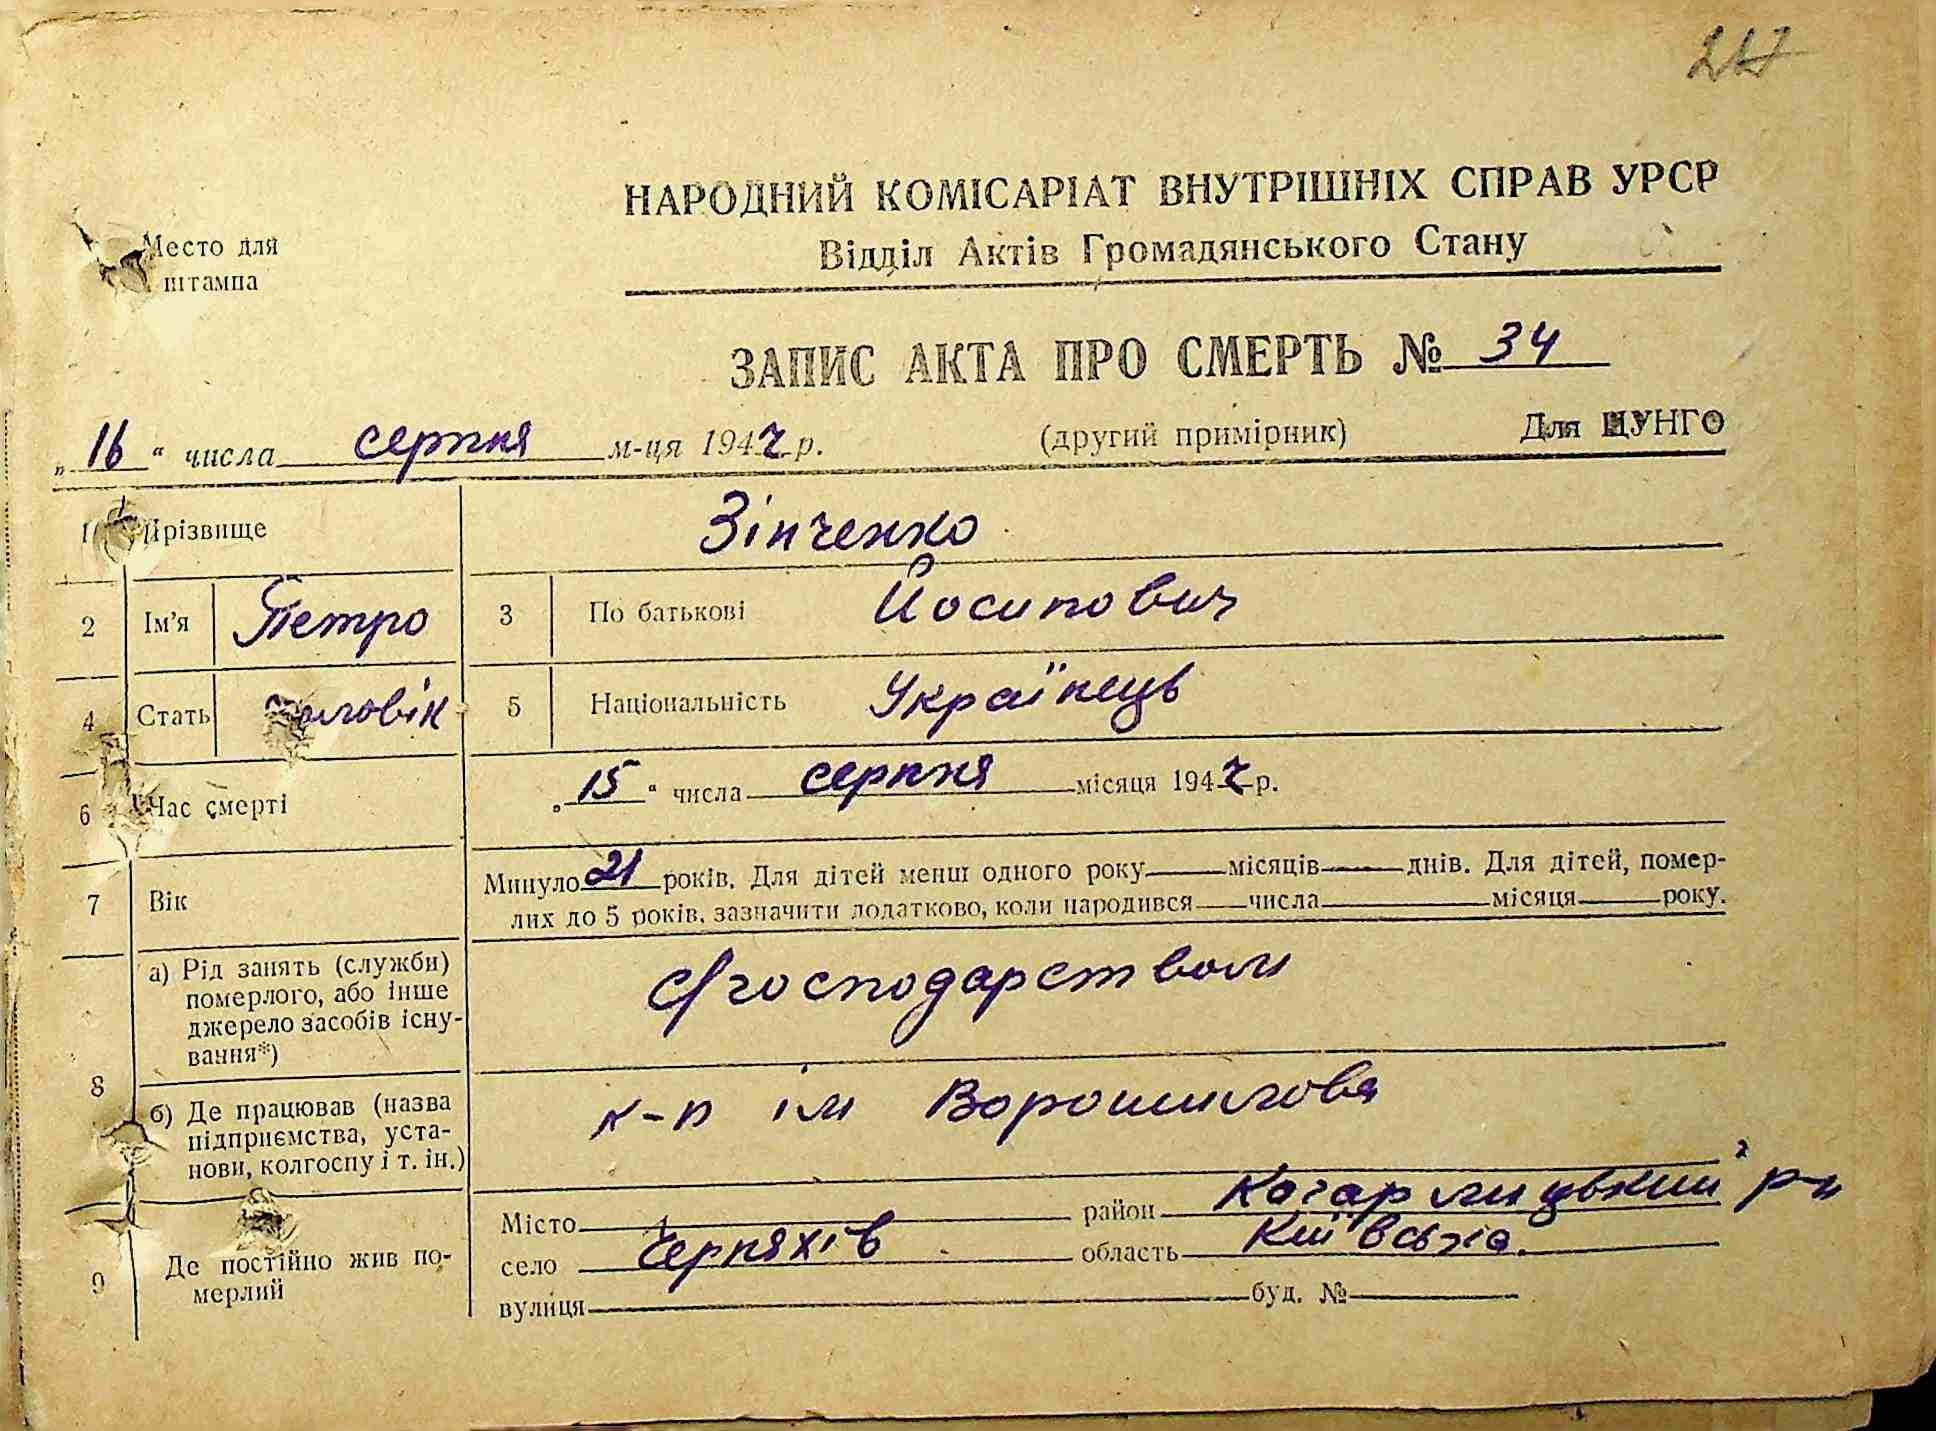 217
НАРОДНИЙ КОМІСАРІАТ ВНУТРІШНІХ СПРАВ УРСР
Відділ Актів Громадянського Стану
Место для
штампа
ЗАПИС АКТА ПРО СМЕРТЬ № 34
„16“ числа серпня м-ця 1947 р.
(другий примірник) Для ЦУНГО
1 Прізвище Зінченко
2 Ім’я Петро 3 По батькові Йосипович
4 Стать чоловік 5 Національність Українець
6 Час смерті „15“ числа серпня місяця 1947 р.
7 Вік Минуло 21 років. Для дітей менш одного року місяців днів. Для дітей, помер-
лих до 5 років, зазначити додатково, коли народився числа місяця року.
8 а) Рід занять (служби)
померлого, або інше
джерело засобів існу-
вання*)
с/господарством
б) Де працював (назва
підприємства, уста-
нови, колгоспу і т. ін.)
к-п ім Ворошилова
9 Де постійно жив по-
мерлий
Місто район Кагарлицький р-н
село Черняхів область Київська
вулиця буд. №